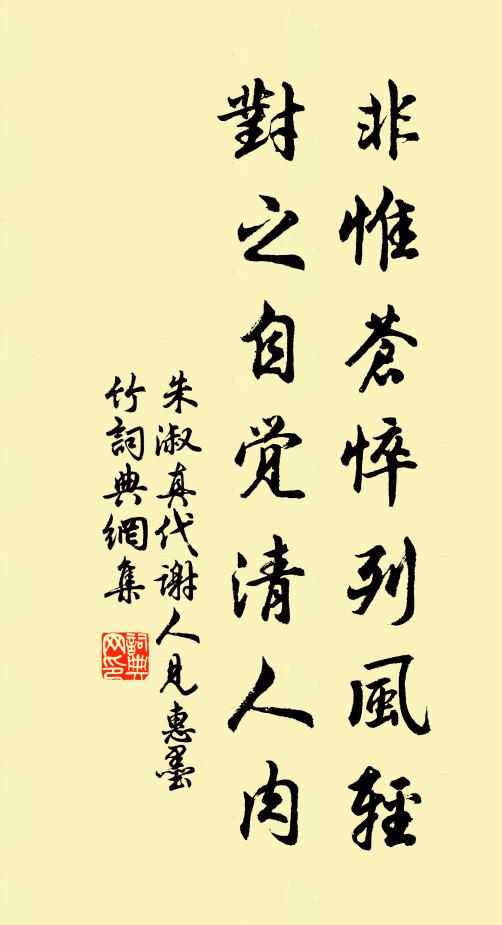 非惟蒼悴列風輕
對之自觉清人肉
朱淑真代謝人見惠墨
竹詞典網集
詞典网印